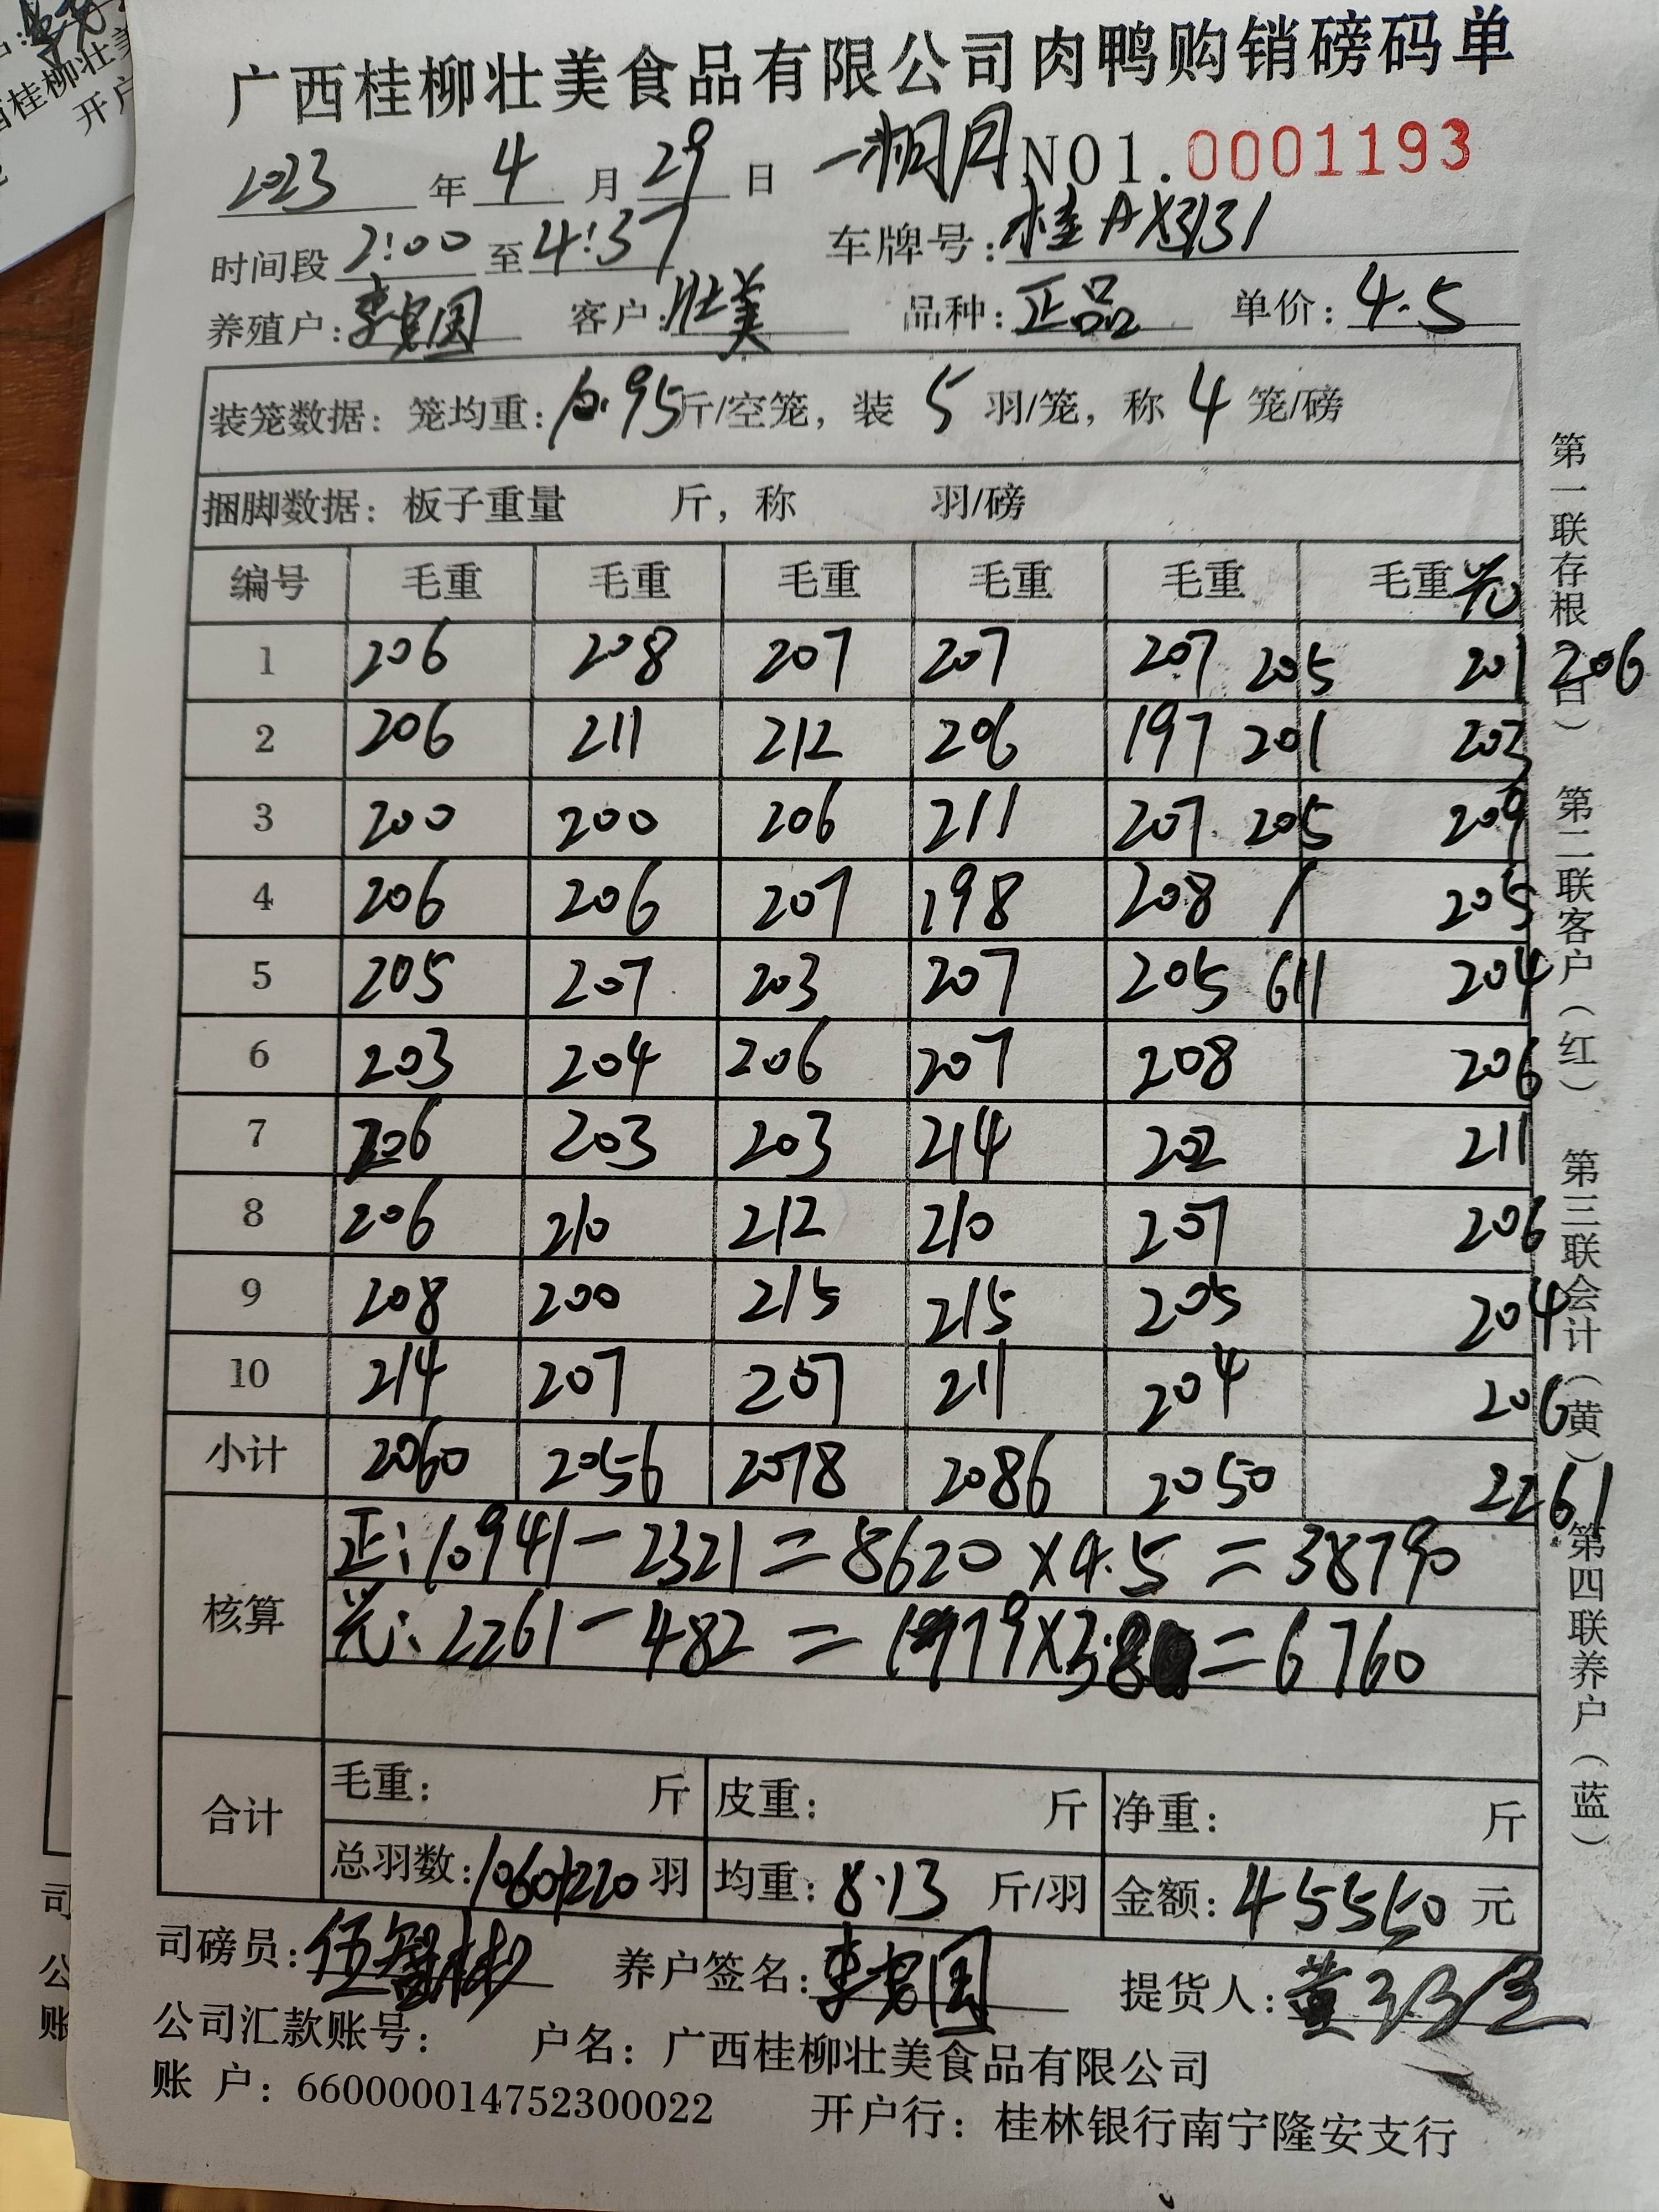 广西桂柳壮美食品有限公司肉鸭购销磅码单
2023 年 4 月 29 日 NO1.0001193
时间段 2:00 至 4:37 车牌号: 桂AX3131
养殖户: 客户: 壮美 品种: 正品 单价: 4.5
装笼数据: 笼均重: 10.95 斤/空笼, 装 5 羽/笼, 称 4 笼/磅
捆脚数据: 板子重量 斤, 称 羽/磅
编号 毛重 毛重 毛重 毛重 毛重 毛重
1 206 208 207 207 207 205 201 206
2 206 211 212 206 197 201 203
3 200 200 206 211 207 205 209
4 206 206 207 198 208 / 205
5 205 207 203 207 205 611 204
6 203 204 206 207 208 206
7 206 203 203 214 202 211
8 206 210 212 210 207 206
9 208 200 215 215 205 204
10 214 207 207 211 204 206
小计 2060 2056 2078 2086 2050 2261
核算
正: 10941-2321=8620×4.5=38790
2261-482=1779×3.8=6760
合计 毛重: 斤 皮重: 斤 净重: 斤
总羽数: 1060/220 羽 均重: 8.13 斤/羽 金额: 45550 元
司磅员: 养户签名: 提货人:
公司汇款账号: 户名: 广西桂柳壮美食品有限公司
账 户: 660000014752300022 开户行: 桂林银行南宁隆安支行
第一联存根(白) 第二联客户(红) 第三联会计(黄) 第四联养户(蓝)